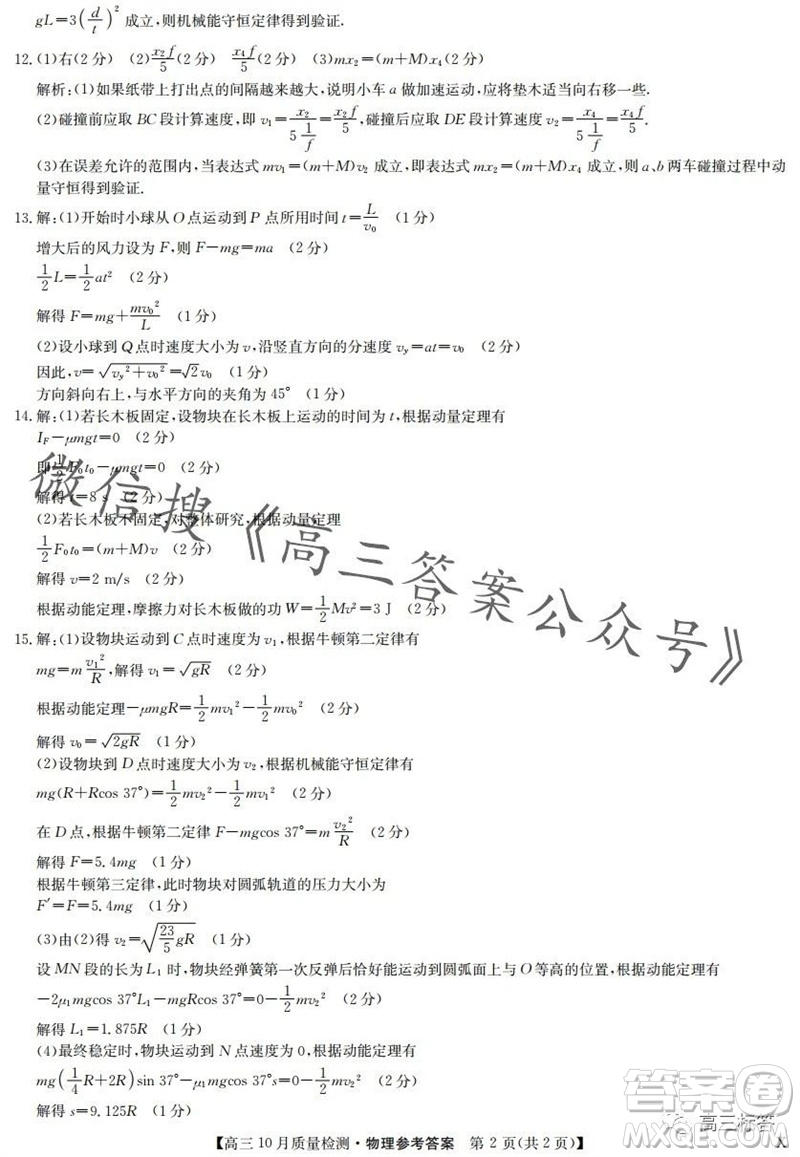 gL=3(d/t)² 成立,则机械能守恒定律得到验证.
12.(1)右(2分) (2)x₂f/5 x₄f/5 (2分) (3)mx₂=(m+M)x₄(2分)
解析:(1)如果纸带上打出点的间隔越来越大,说明小车a做加速运动,应将垫木适当向右移一些.
(2)碰撞前应取BC段计算速度,即v₁=x₂/(5 1/f)=x₂f/5,碰撞后应取DE段计算速度v₂=x₄/(5 1/f)=x₄f/5.
(3)在误差允许的范围内,当表达式mv₁=(m+M)v₂成立,即表达式mx₂=(m+M)x₄成立,则a、b两车碰撞过程中动
量守恒得到验证.
13.解:(1)开始时小球从O点运动到P点所用时间t=L/v₀ (1分)
增大后的风力设为F,则F-mg=ma (2分)
1/2 L=1/2 at² (2分)
解得F=mg+mv₀²/L (1分)
(2)设小球到Q点时速度大小为v,沿竖直方向的分速度v_y=at=v₀ (2分)
因此,v=√(v_y²+v₀²)=√2v₀ (1分)
方向斜向右上,与水平方向的夹角为45° (1分)
14.解:(1)若长木板固定,设物块在长木板上运动的时间为t,根据动量定理有
I_F-μmgt=0 (2分)
即1/2 F₀t₀-μmgt=0 (2分)
解得t=8 s (2分)
(2)若长木板不固定,对整体研究,根据动量定理
1/2 F₀t₀=(m+M)v (2分)
解得v=2 m/s (2分)
根据动能定理,摩擦力对长木板做的功W=1/2 Mv²=3 J (2分)
15.解:(1)设物块运动到C点时速度为v₁,根据牛顿第二定律有
mg=m v₁²/R,解得v₁=√(gR) (2分)
根据动能定理-μmgR=1/2 mv₁²-1/2 mv₀² (2分)
解得v₀=√(2gR) (1分)
(2)设物块到D点时速度大小为v₂,根据机械能守恒定律有
mg(R+Rcos 37°)=1/2 mv₂²-1/2 mv₁² (2分)
在D点,根据牛顿第二定律F-mgcos 37°=m v₂²/R (2分)
解得F=5.4mg (1分)
根据牛顿第三定律,此时物块对圆弧轨道的压力大小
F′=F=5.4mg (1分)
(3)由(2)得v₂=√(23/5 gR) (1分)
设MN段的长为L₁时,物块经弹簧第一次反弹后恰好能运动到圆弧面上与O等高的位置,根据动能定理有
-2μ₁mgcos 37°L₁-mgRcos 37°=0-1/2 mv₂² (2分)
解得L₁=1.875R (1分)
(4)最终稳定时,物块运动到N点速度为0,根据动能定理有
mg(1/4 R+2R)sin 37°-μ₁mgcos 37°s=0-1/2 mv₂² (2分)
解得s=9.125R (1分)
【高三10月质量检测·物理参考答案 第2页(共2页)】 X
微信搜《高三答案公众号》
答案圈
高三标答
MXQE.COM